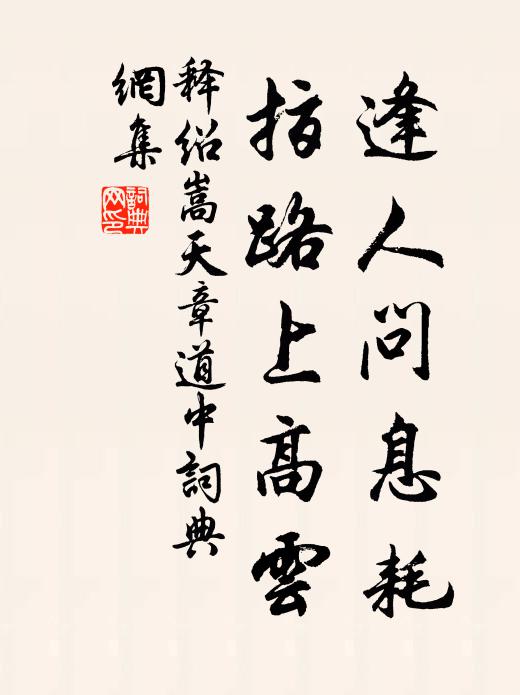 逢人问息耗
指路上高雲
释绍嵩天章道中詞典
網集
詞典
网印